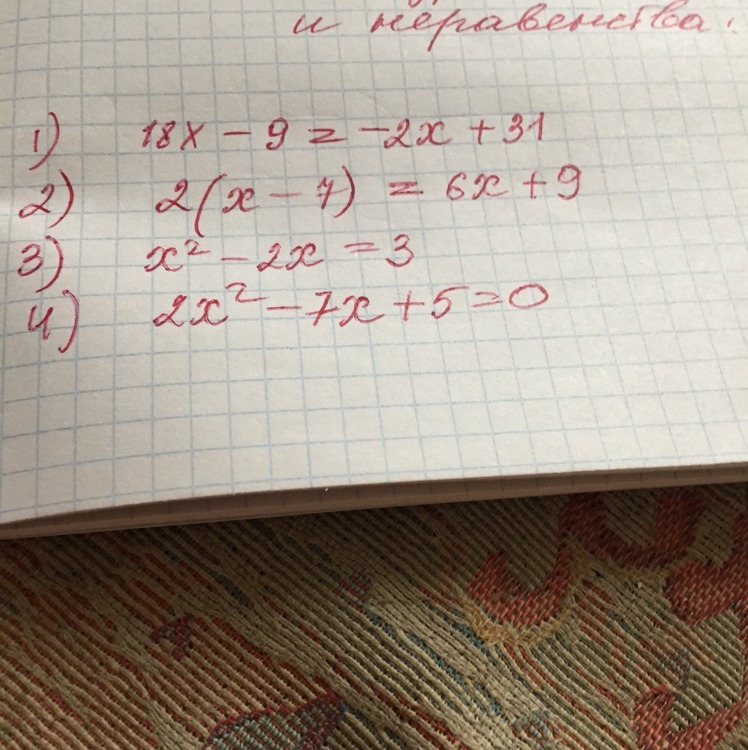 и неравенства.
1) 18x - 9 = -2x + 31
2) 2(x - 7) = 6x + 9
3) x² - 2x = 3
4) 2x² - 7x + 5 = 0